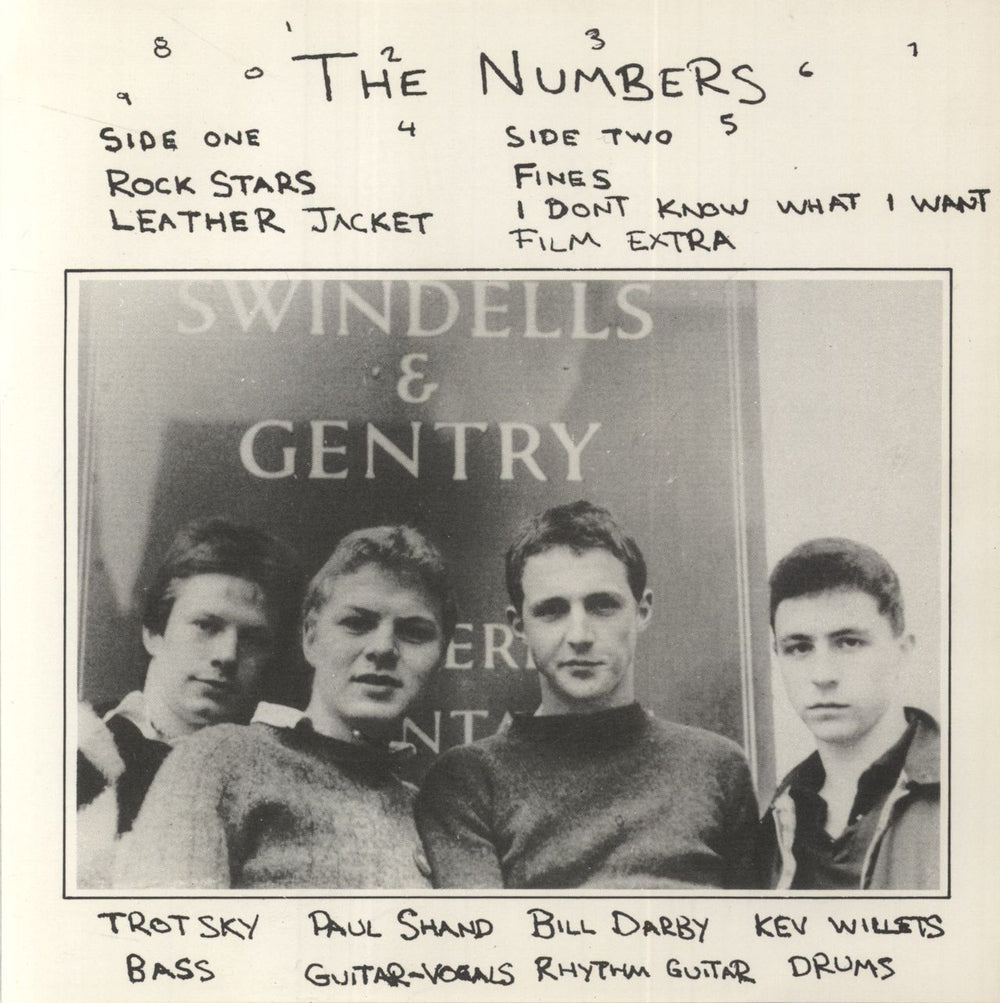 8 1 2 3 7
9 0 THE NUMBERS 6
4 5
SIDE ONE
ROCK STARS
LEATHER JACKET
SIDE TWO
FINES
I DONT KNOW WHAT I WANT
FILM EXTRA
SWINDELLS
&
GENTRY
ER
NTA
TROTSKY PAUL SHAND BILL DARBY KEV WILLETS
BASS GUITAR-VOCALS RHYTHM GUITAR DRUMS